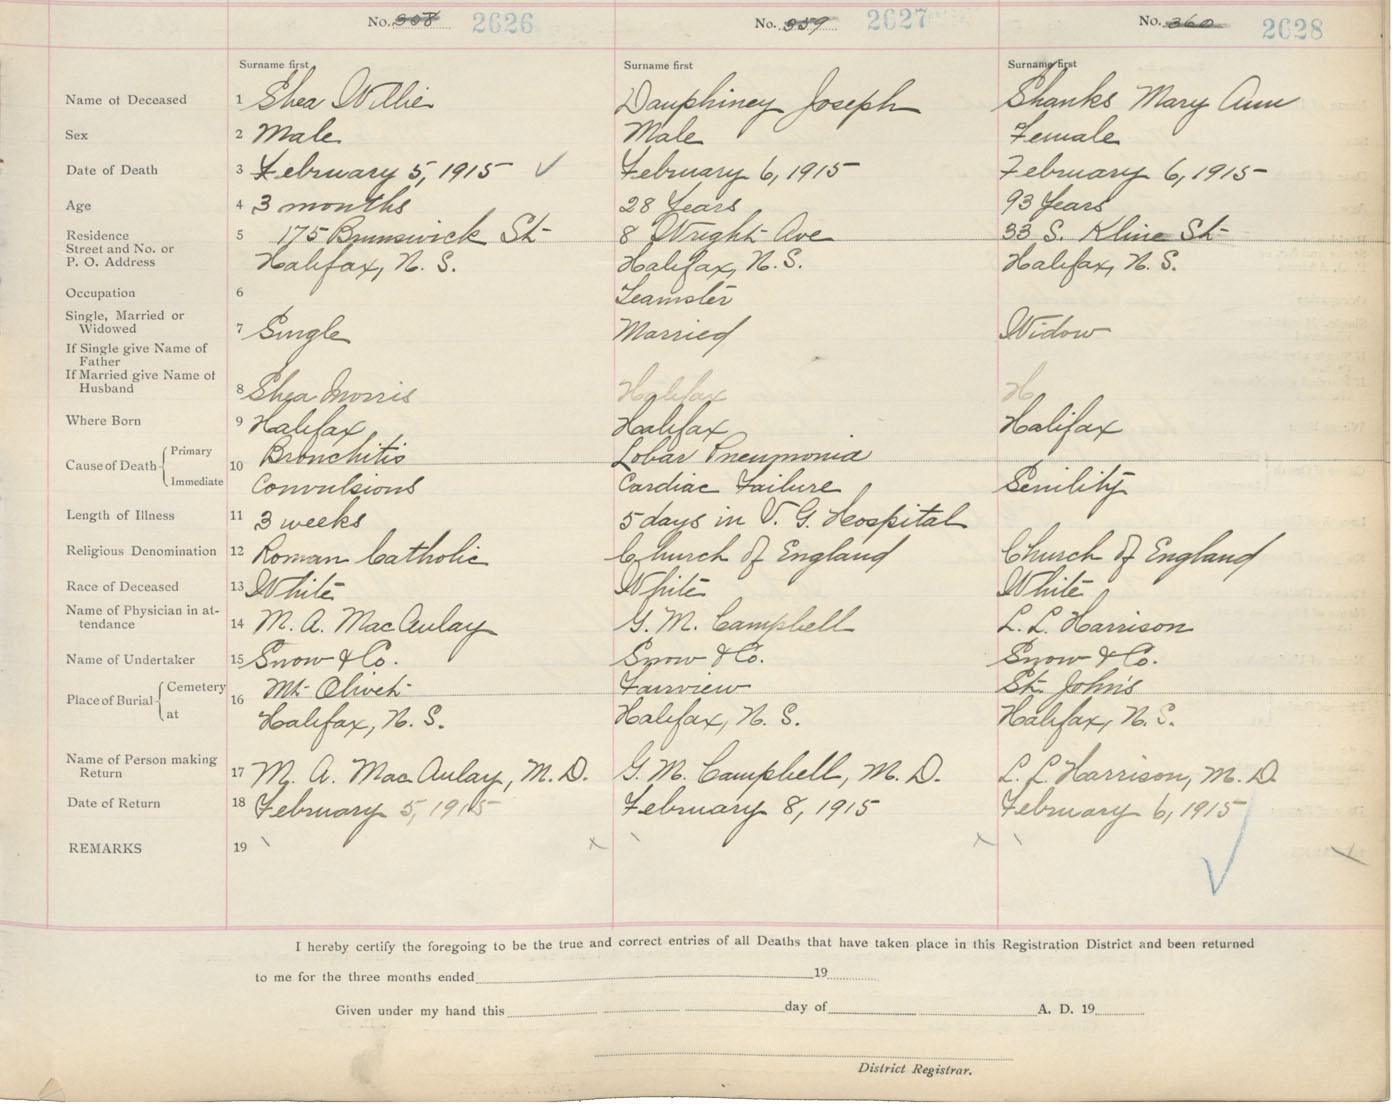 No. 358 2626 No. 359 2627 No. 360 2628
Surname first Surname first Surname first
Name of Deceased 1 Shea Willie Dauphiney Joseph Shanks Mary Ann
Sex 2 Male Male Female
Date of Death 3 February 5, 1915 ✓ February 6, 1915 February 6, 1915
Age 4 3 months 28 Years 93 Years
Residence 5 175 Brunswick St 8 Wright Ave 33 S. Kline St
Street and No. or
P. O. Address Halifax, N. S. Halifax, N. S. Halifax, N. S.
Occupation 6 Teamster
Single, Married or
Widowed 7 Single Married Widow
If Single give Name of
Father
If Married give Name of
Husband 8 Shea Morris Halifax H
Where Born 9 Halifax Halifax Halifax
Cause of Death Primary 10 Bronchitis Lobar Pneumonia
Immediate Convulsions Cardiac Failure Senility
Length of Illness 11 3 weeks 5 days in V. G. Hospital
Religious Denomination 12 Roman Catholic Church of England Church of England
Race of Deceased 13 White White White
Name of Physician in at-
tendance 14 M. A. MacAulay G. M. Campbell L. L. Harrison
Name of Undertaker 15 Snow & Co. Snow & Co. Snow & Co.
Place of Burial Cemetery 16 Mt Olivet Fairview St. John's
at Halifax, N. S. Halifax, N. S. Halifax, N. S.
Name of Person making
Return 17 M. A. MacAulay, M. D. G. M. Campbell, M. D. L. L. Harrison, M. D.
Date of Return 18 February 5, 1915 February 8, 1915 February 6, 1915
REMARKS 19
I hereby certify the foregoing to be the true and correct entries of all Deaths that have taken place in this Registration District and been returned
to me for the three months ended 19
Given under my hand this day of A. D. 19
District Registrar.